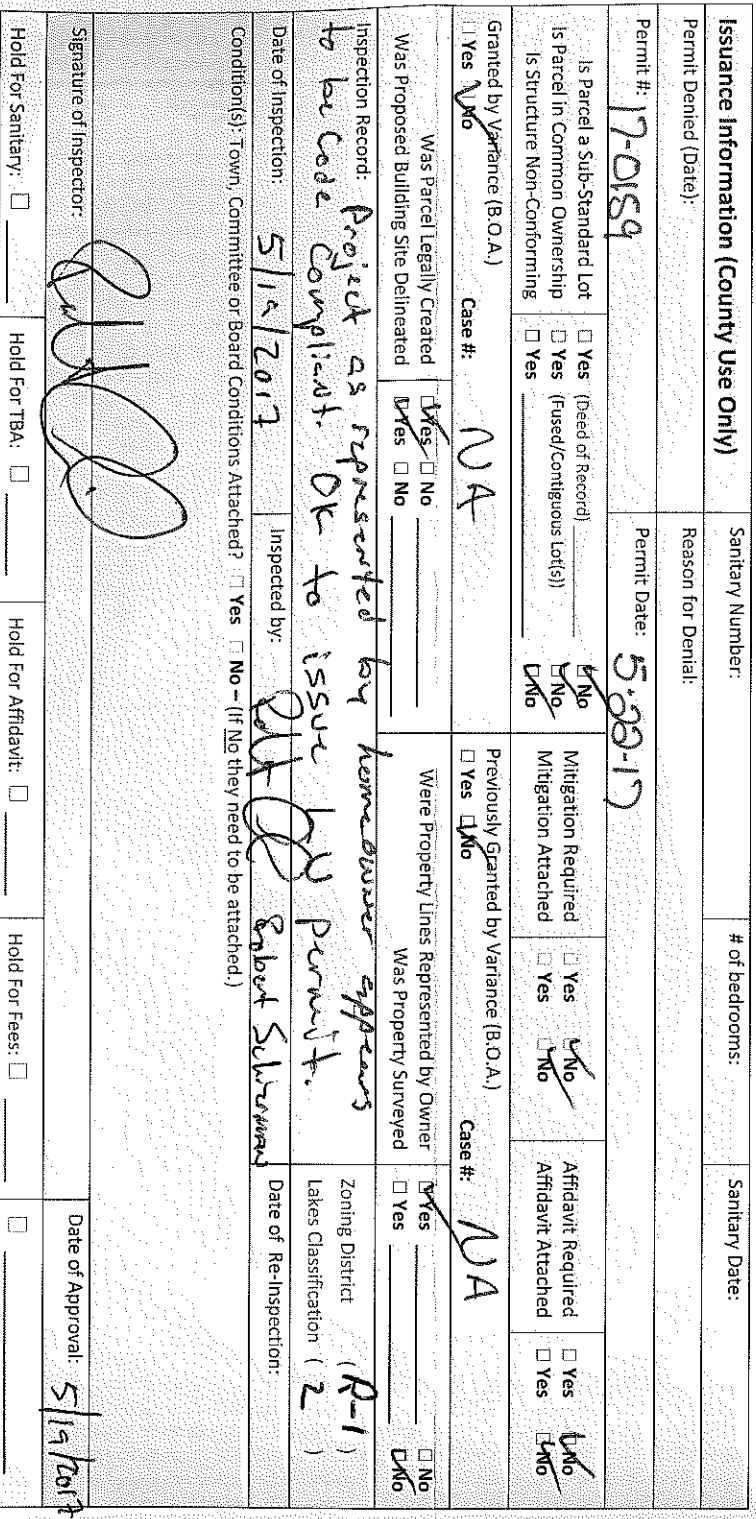 Issuance Information (County Use Only)
Sanitary Number:
# of bedrooms:
Sanitary Date:
Permit Denied (Date):
Reason for Denial:
Permit #: 17-0159
Permit Date: 5-22-17
Is Parcel a Sub-Standard Lot ☐ Yes (Deed of Record) ☑ No
Is Parcel in Common Ownership ☐ Yes (Fused/Contiguous Lot(s)) ☑ No
Is Structure Non-Conforming ☐ Yes ☑ No
Mitigation Required ☐ Yes ☑ No
Mitigation Attached ☐ Yes ☑ No
Affidavit Required ☐ Yes ☑ No
Affidavit Attached ☐ Yes ☑ No
Granted by Variance (B.O.A.)
☐ Yes ☑ No Case #: NA
Previously Granted by Variance (B.O.A.)
☐ Yes ☑ No Case #: NA
Was Parcel Legally Created ☑ Yes ☐ No
Was Proposed Building Site Delineated ☑ Yes ☐ No
Were Property Lines Represented by Owner ☑ Yes ☐ No
Was Property Surveyed ☐ Yes ☑ No
Inspection Record: Project as represented by homeowner appears
to be code compliant. OK to issue LU permit.
Zoning District (R-1)
Lakes Classification (2)
Date of Inspection: 5/19/2017
Inspected by: Robert Schierman
Date of Re-Inspection:
Condition(s): Town, Committee or Board Conditions Attached? ☐ Yes ☐ No – (If No they need to be attached.)
Signature of Inspector:
Date of Approval: 5/19/2017
Hold For Sanitary: ☐
Hold For TBA: ☐
Hold For Affidavit: ☐
Hold For Fees: ☐
☐